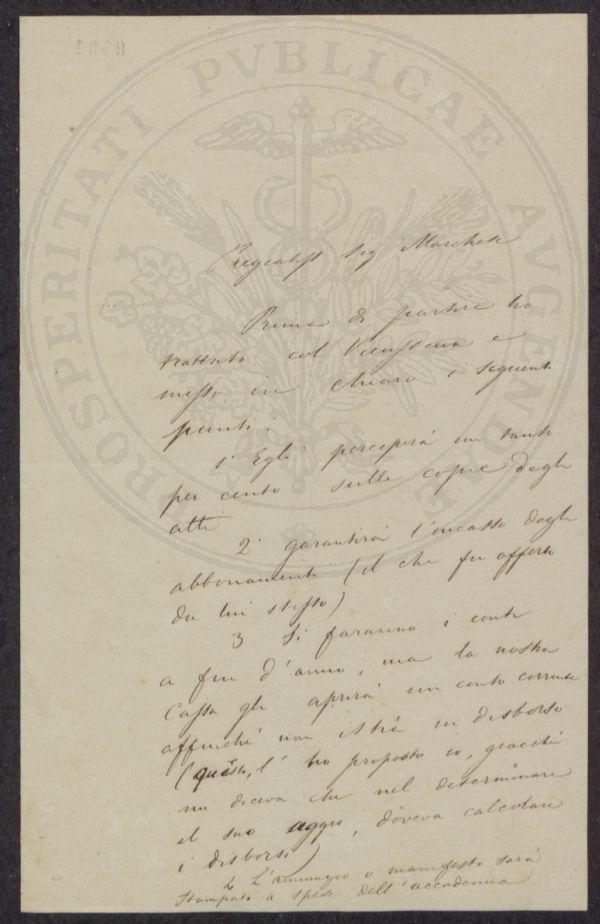 PROSPERITATI PVBLICAE AVGENDAE
Pregiatiss Sig Marchese
Prima di partire ho
trattato col e
messo in chiaro i seguenti
punti:
1° Egli percepirà un tanto
per cento sulle copie degli
atti
2° garantirà l'incasso degli
abbonamenti (il che fu offerto
da lui stesso)
3 Si faranno i conti
a fin d'anno, ma la nostra
Cassa gli aprirà un conto corrente
affinché non istia in disborso
(questo, l'ho proposto io, giacché
mi diceva che nel determinare
il suo aggio, doveva calcolare
i disborsi)
4 L'annunzio o manifesto sarà
stampato a spese dell'accademia